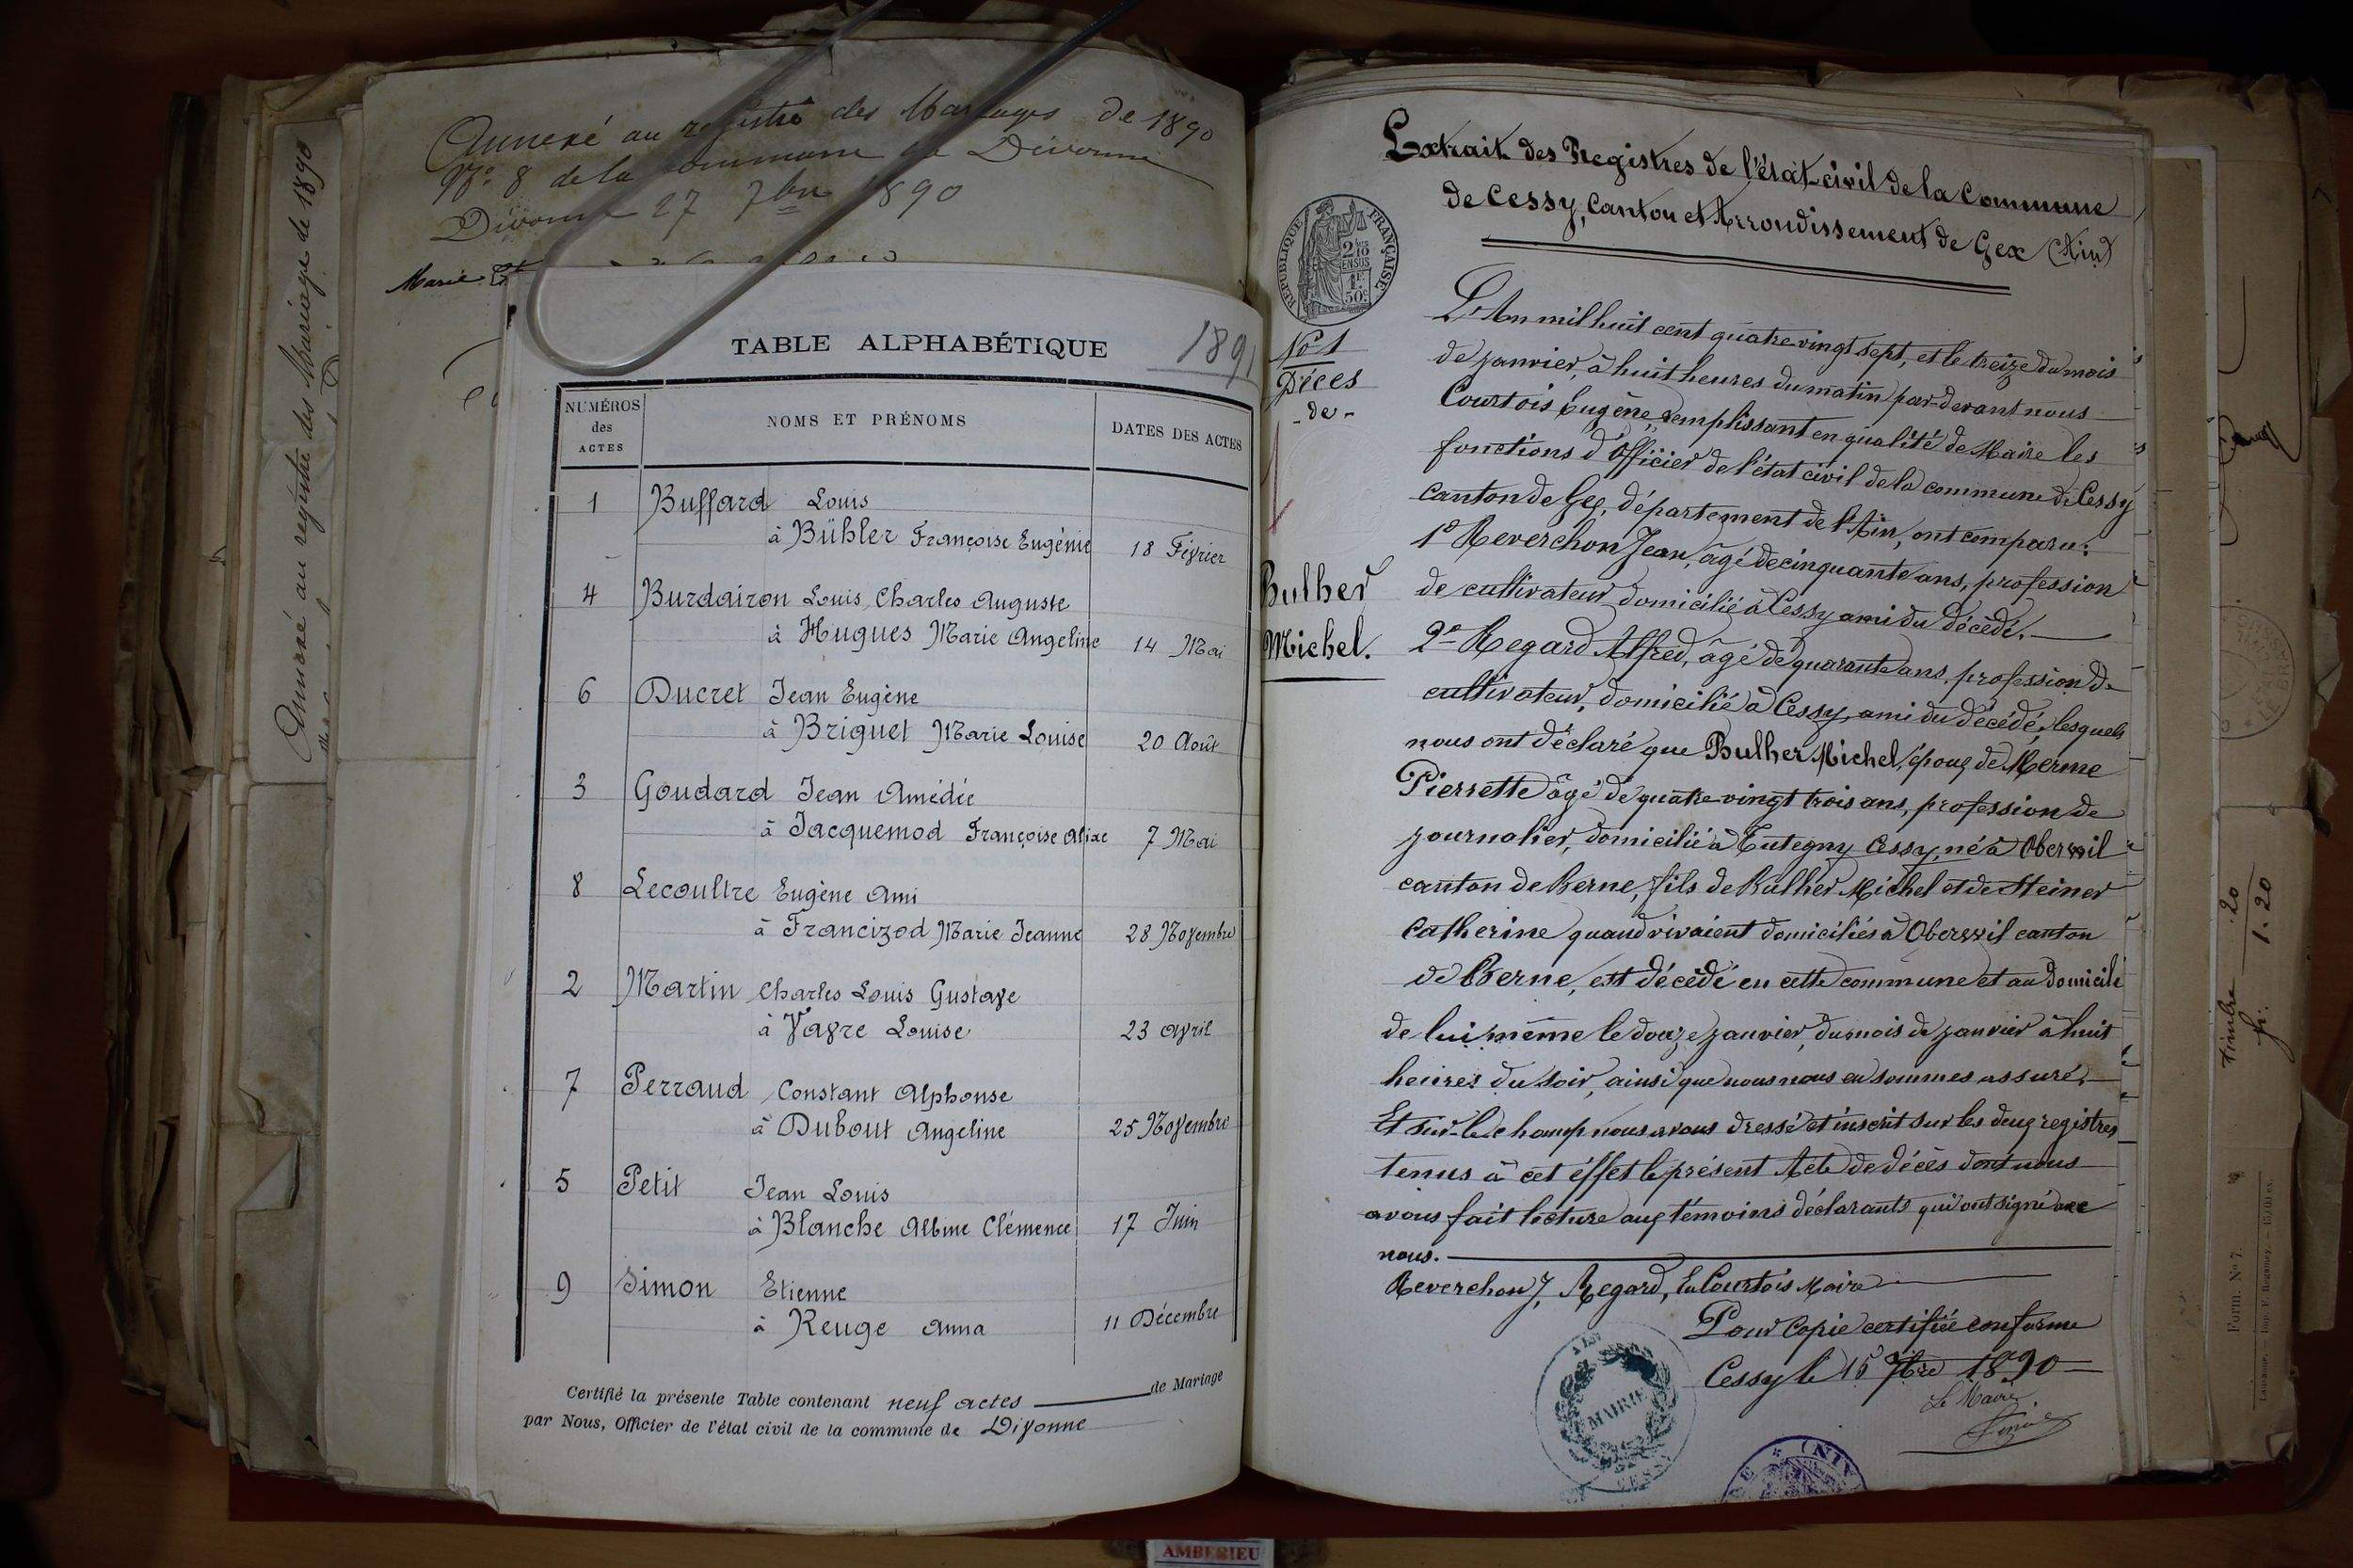 Annexé au registre des Mariages de 1890
Annexé au registre des Mariages de 1890
No 8 de la commune de Divonne
Divonne 27 7bre 1890
Marie
TABLE ALPHABÉTIQUE
1891
NUMÉROS
des
ACTES
NOMS ET PRÉNOMS
DATES DES ACTES
1 Buffard Louis
à Bühler Françoise Eugénie 18 Février
4 Burdairon Louis Charles Auguste
à Hugues Marie Angeline 14 Mai
6 Ducret Jean Eugène
à Briguet Marie Louise 20 Août
3 Goudard Jean Amédée
à Jacquemod Françoise 7 Mai
8 Lecoultre Eugène Ami
à Francizod Marie Jeanne 28 Novembre
2 Martin Charles Louis Gustave
à Vavre Louise 23 Avril
7 Perraud Constant Alphonse
à Dubout Angeline 25 Novembre
5 Petit Jean Louis
à Blanche Albine Clémence 17 Juin
9 Simon Etienne
à Reuge Anna 11 Décembre
Certifié la présente Table contenant neuf actes de Mariage
par Nous, Officier de l'état civil de la commune de Divonne
Extrait des Registres de l'état-civil de la Commune
de Cessy, Canton et Arrondissement de Gex (Ain)
RÉPUBLIQUE FRANÇAISE
2/10
EN SUS
1F
50c
No 1
Décès
-de-
Bulher
Michel.
L'An mil huit cent quatre vingt sept, et le treize du mois
de janvier, à huit heures du matin par-devant nous
Courtois Eugène, remplissant en qualité de Maire les
fonctions d'Officier de l'état civil de la commune de Cessy
canton de Gex, département de l'Ain, ont comparu:
1o Reverchon Jean, âgé de cinquante ans, profession
de cultivateur domicilié à Cessy ami du décédé.
2o Regard Alfred, âgé de quarante ans, profession de
cultivateur, domicilié à Cessy, ami du décédé, lesquels
nous ont déclaré que Bulher Michel, époux de Merme
Pierrette âgé de quatre vingt trois ans, profession de
journalier, domicilié à Tutegny Cessy, né à Oberwil
canton de Berne, fils de Bulher Michel et de Steiner
Catherine quand vivaient domiciliés à Oberwil canton
de Berne, est décédé en cette commune et au domicile
de lui même le douze janvier, du mois de janvier à huit
heures du soir, ainsi que nous nous en sommes assuré.
Et sur-le-champ nous avons dressé et inscrit sur les deux registres
tenus à cet éffet le présent Acte de décès dont nous
avons fait lecture aux témoins déclarants qui ont signé avec
nous.
Reverchon J, Regard, Courtois Maire
Pour Copie certifiée conforme
Cessy le 15 7bre 1890
Le Maire
MAIRIE
CESSY
timbre .20
fr: 1.20
Form. No 7.
AMBERIEU